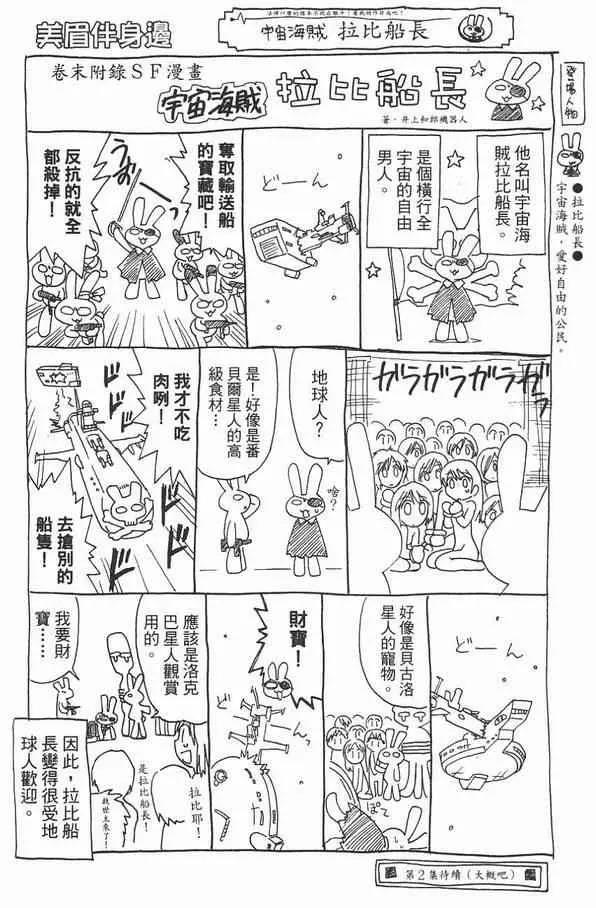 美眉伴身邊
宇宙海賊 拉比船長
卷末附錄SF漫畫
宇宙海賊 拉比船長
著‧井上和郎機器人
登場人物
●拉比船長●
宇宙海賊，愛好自由的公民。
他名叫宇宙海
賊拉比船長。
是個橫行全
宇宙的自由
男人。
どーん
奪取輸送船
的寶藏吧！
うおーっ
反抗的就全
都殺掉！
ガラガラガラガラ
地球人？
啥？
是！好像是番
貝爾星人的高
級食材…
我才不吃
肉咧！
去搶別的
船隻！
どーん
好像是貝古洛
星人的寵物。
ぽて
財寶！
應該是洛克
巴星人觀賞
用的。
我要財
寶……
拉比耶！
是拉比船長！
救世主來了！
因此，拉比船
長變得很受地
球人歡迎。
第2集待續（大概吧）